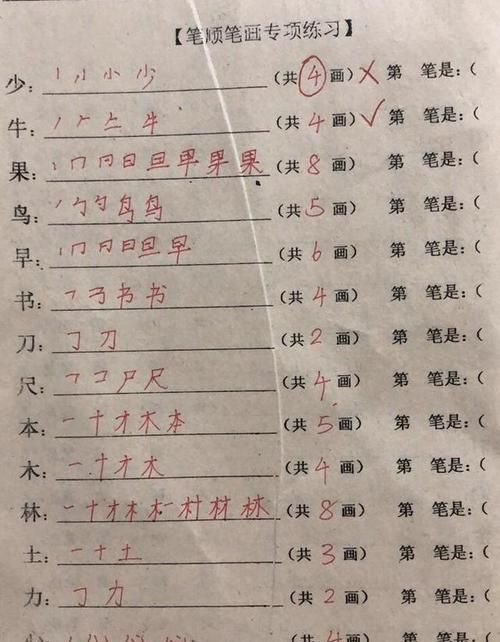 【笔顺笔画专项练习】
少: 丨 小 少 (共 4 画) ✗ 第 笔是: (
牛: 丿 𠂉 牛 (共 4 画) ✓ 第 笔是: (
果: 丨 冂 日 日 旦 早 果 果 (共 8 画) 第 笔是: (
鸟: 丿 勹 鸟 鸟 (共 5 画) 第 笔是: (
早: 丨 冂 日 日 旦 早 (共 6 画) 第 笔是: (
书: 乛 书 书 (共 4 画) 第 笔是: (
刀: 𠃌 刀 (共 2 画) 第 笔是: (
尺: 乛 コ 尸 尺 (共 4 画) 第 笔是: (
本: 一 十 才 木 本 (共 5 画) 第 笔是: (
木: 一 十 才 木 (共 4 画) 第 笔是: (
林: 一 十 才 木 村 材 林 (共 8 画) 第 笔是: (
土: 一 十 土 (共 3 画) 第 笔是: (
力: 𠃌 力 (共 2 画) 第 笔是: (